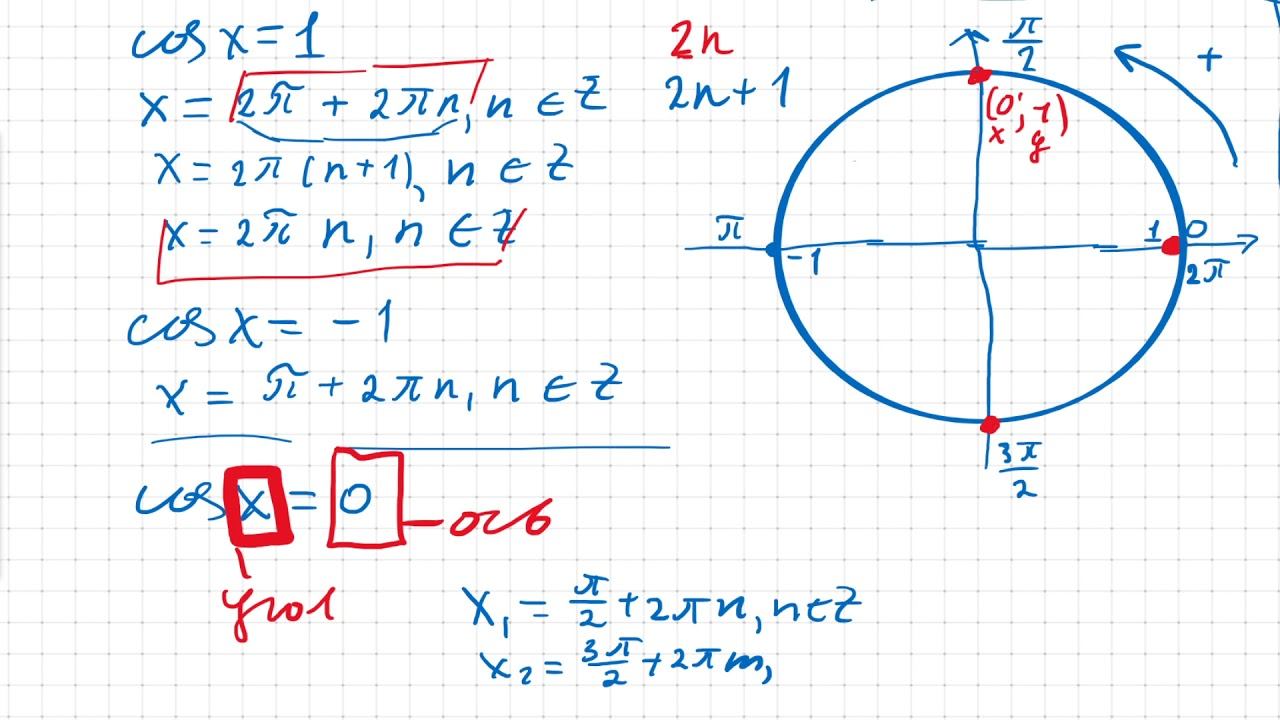 cos x = 1
x = 2π + 2πn, n ∈ Z
x = 2π (n+1), n ∈ Z
x = 2π n, n ∈ Z
cos x = -1
x = π + 2πn, n ∈ Z
cos x = 0 - ось
угол
x₁ = π/2 + 2πn, n ∈ Z
x₂ = 3π/2 + 2πm,
2n
2n + 1
π/2
+
(0; 1)
x y
π
-1
1
0
2π
3π/2